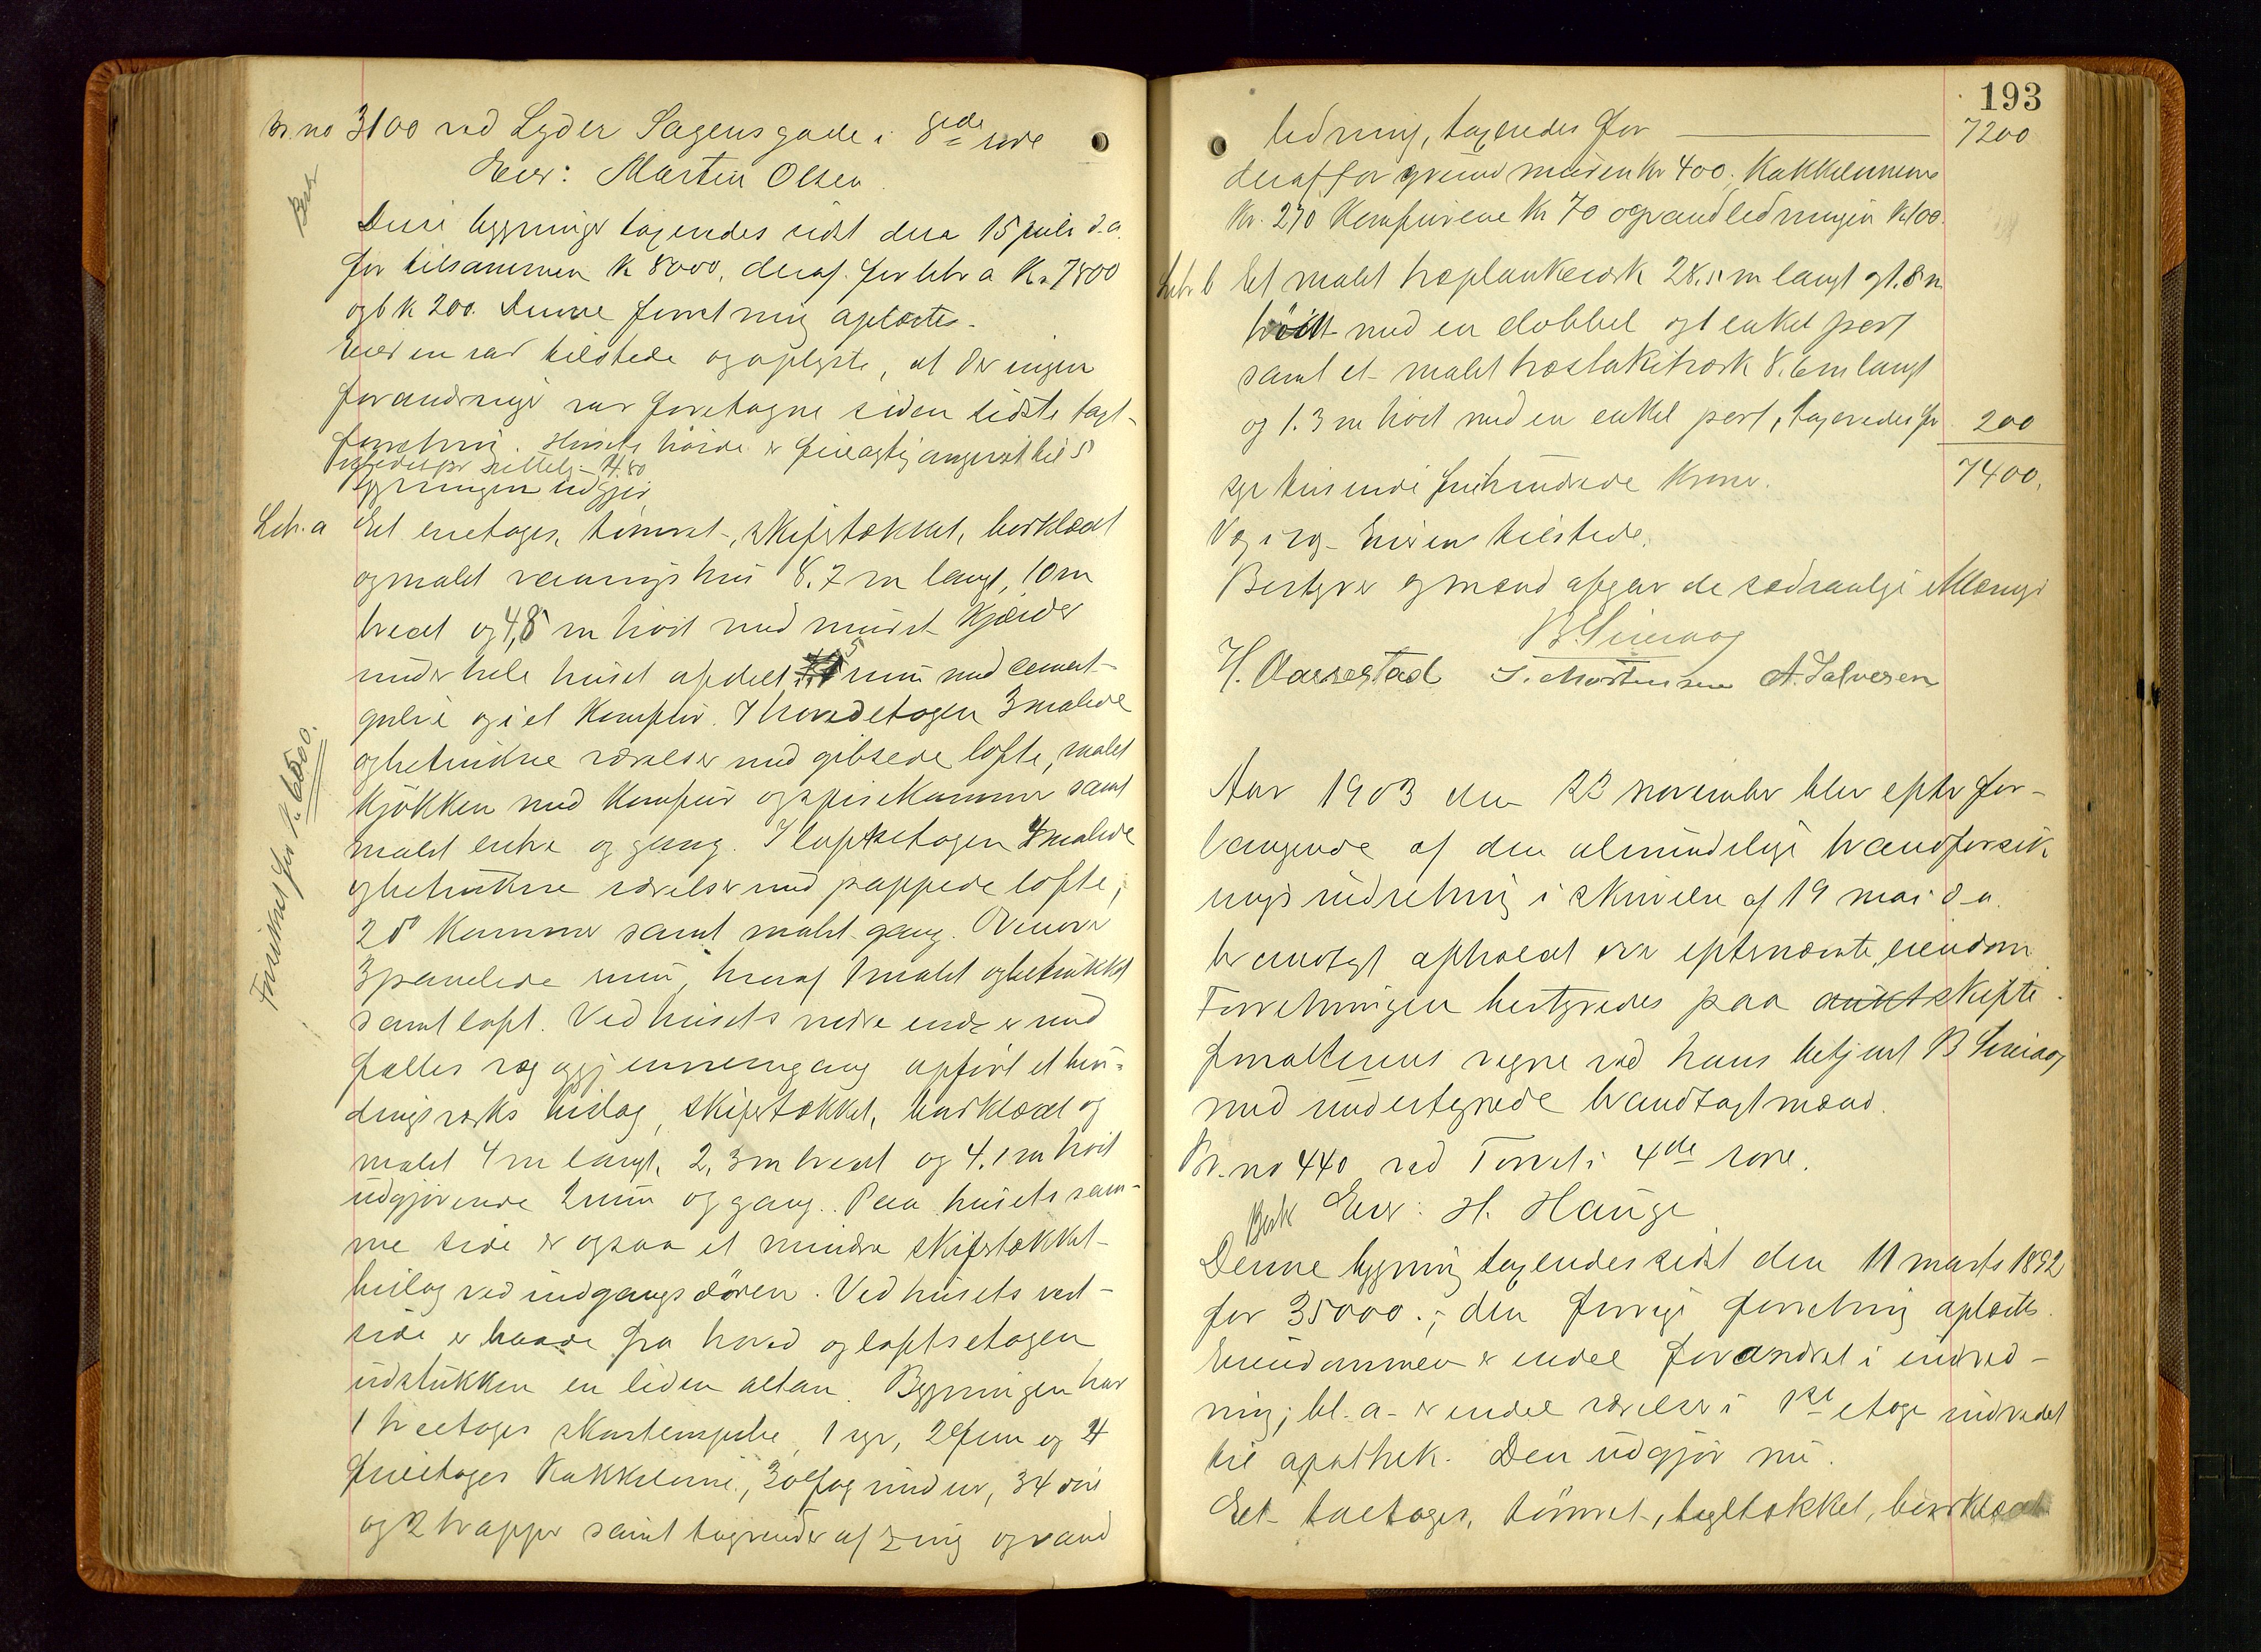 Br.no 3100 ved Lyder Sagens gade i 8de rode
Eier: Martin Olsen.
Besk
Disse bygninger taxeredes sidst den 15 juli d.a.
for tilsammen Kr 8000, deraf for litr a Kr 7800
og b kr 200. Denne forretning oplæstes.
Eieren var tilstede og oplyste, at der ingen
forandringer var foretagne siden sidste taxt-
forretning. Husets høide er feilagtig angivet til 5
istedetfor rettelig 4.80
Bygningen udgjør
Litr. a Et enetages, tømret, skifertækket, bordklædt
og malet vaaningshus 8.7 m langt, 10 m
bredt og 4,8 m høit med muret kjælder
under hele huset afdelt i 5 rum med cement-
gulve og i et komfur. I hovedetagen 3 malede
og betrukne værelser med gibsede lofte, malet
kjøkken med komfur og spisekammer samt
malet entre og gang. I loftsetagen 4 malede
og betrukne værelser med pappede lofte,
2 do kammer samt malet gang. Ovenover
3 panelede rum, hvoraf 1 malet og betrukket
samt loft. Ved husets nedre ende er med
fælles væg og gjennemgang opført et bin-
dingsverks bislag, skifertækket, bordklædt og
malet 4 m langt, 2,3 m bredt og 4.1 m høit
udgjørende 2 rum og gang. Paa husets sam-
me side er ogsaa et mindre skifertækket
bislag ved indgangsdøren. Ved husets vest-
side er baade fra hoved og loftsetagen
udstukken en liden altan. Bygningen har
1 treetages skorstenspibe, 1 2 og 4
fireetages kakkelovne, 30 fag vinduer, 34 døre
og 2 trapper samt tagrender af zink og vand
Forsikret for Kr. 6500.
193
ledning, taxeredes for 7200
deraf for grundmuren kr 400, kakkelovnene
Kr. 270 komfurene kr 70 og vandledningen kr 100.
Litr b Et malet træplankeværk 28.5 m langt og 1.8 m
høit med en dobbel og 1 enkel port
samt et malet træstakitværk 8.6 m langt
og 1.3 m høit med en enkel port, taxeredes for 200
7400.
syv tusinde firehundrede kroner.
Eieren tilstede.
Bestyrer og mænd afgav de sædvanlige
B. Sivaag
H. Aarrestad J. Mortensen A. Salvesen
Aar 1903 den 23 november blev efter for-
langende af den almindelige brandforsik
rings indretning i skrivelse af 19 mai d.a.
brandtaxt afholdt over efternævnte eiendom.
Forretningen bestyredes paa aukt skifte
forvalterens vegne ved hans betjent B Sivaag
med undertegnede brandtaxtmænd.
Br.no 440 ved Torvet i 4de rode.
Besk Eier: H. Hauge
Denne bygning taxeredes sidst den 11 marts 1892
for 35000.; den forrige forretning oplæstes.
Eiendommen er endel forandret i indred-
ning; bl. a. er endel værelser i 1ste etage indredet
til apothek. Den udgjør nu.
Et toetages, tømret, tegltækket, bordklædt